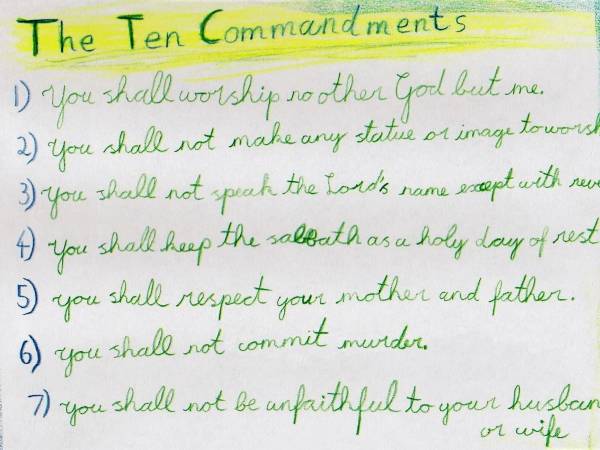 The Ten Commandments
1) You shall worship no other God but me.
2) You shall not make any statue or image to worsh
3) You shall not speak the Lord's name except with reve
4) You shall keep the sabbath as a holy day of rest
5) you shall respect your mother and father.
6) you shall not commit murder.
7) you shall not be unfaithful to your husban
or wife